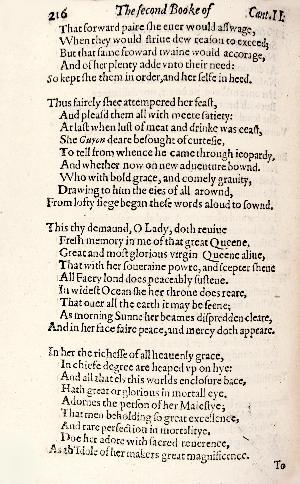 216 The second Booke of Cant. II.
That forward paire she euer would asswage,
When they would striue dew reason to exceed;
But that same froward twaine would accorage,
And of her plenty adde vnto their need:
So kept she them in order, and her selfe in heed.
Thus fairely shee attempered her feast,
And pleasd them all with meete satiety:
At last when lust of meat and drinke was ceast,
She Guyon deare besought of curtesie,
To tell from whence he came through ieopardy,
And whether now on new aduenture bownd.
Who with bold grace, and comely grauity,
Drawing to him the eies of all arownd,
From lofty siege began these words aloud to sownd.
This thy demaund, O Lady, doth reuiue
Fresh memory in me of that great Queene,
Great and most glorious virgin Queene aliue,
That with her soueraine powre, and scepter shene
All Faery lond does peaceably sustene.
In widest Ocean she her throne does reare,
That ouer all the earth it may be seene;
As morning Sunne her beames dispredden cleare,
And in her face faire peace, and mercy doth appeare.
In her the richesse of all heauenly grace,
In chiefe degree are heaped vp on hye:
And all that els this worlds enclosure bace,
Hath great or glorious in mortall eye,
Adornes the person of her Maiestye;
That men beholding so great excellence,
And rare perfection in mortalitye,
Doe her adore with sacred reuerence,
As th'Idole of her makers great magnificence.
To